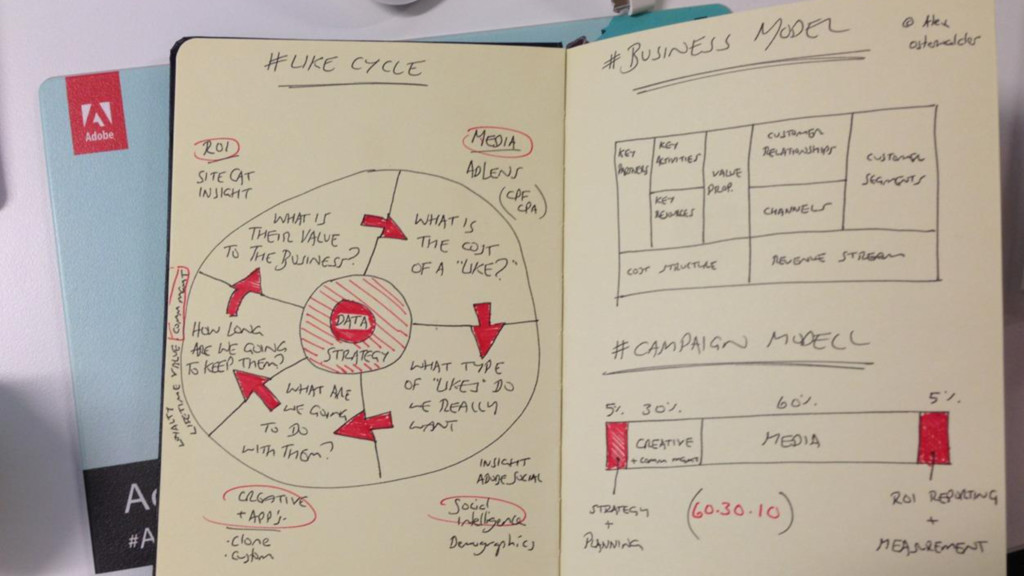 #LIKE CYCLE
Adobe
ROI
SITE CAT
INSIGHT
MEDIA
ADLENS
(CPF
CPA)
WHAT IS
THEIR VALUE
TO THE BUSINESS?
WHAT IS
THE COST
OF A "LIKE?"
WHAT TYPE
OF "LIKES" DO
WE REALLY
WANT
WHAT ARE
WE GOING
TO DO
WITH THEM?
HOW LONG
ARE WE GOING
TO KEEP THEM?
DATA
STRATEGY
LIFETIME VALUE COMM MGMT
INSIGHT
ADOBE SOCIAL
CREATIVE
+ APP's.
• Clone
• Custom
Social
Intelligence
Demographics
#A
#BUSINESS MODEL
© Alex
KEY
PARTNERS
KEY
ACTIVITIES
KEY
RESOURCES
VALUE
PROP.
CUSTOMER
RELATIONSHIPS
CHANNELS
CUSTOMER
SEGMENTS
COST STRUCTURE
REVENUE STREAM
#CAMPAIGN MODELL
5% 30% 60% 5%
CREATIVE
+ COMM MGMT
MEDIA
STRATEGY
+
PLANNING
(60.30.10)
ROI REPORTING
+
MEASUREMENT